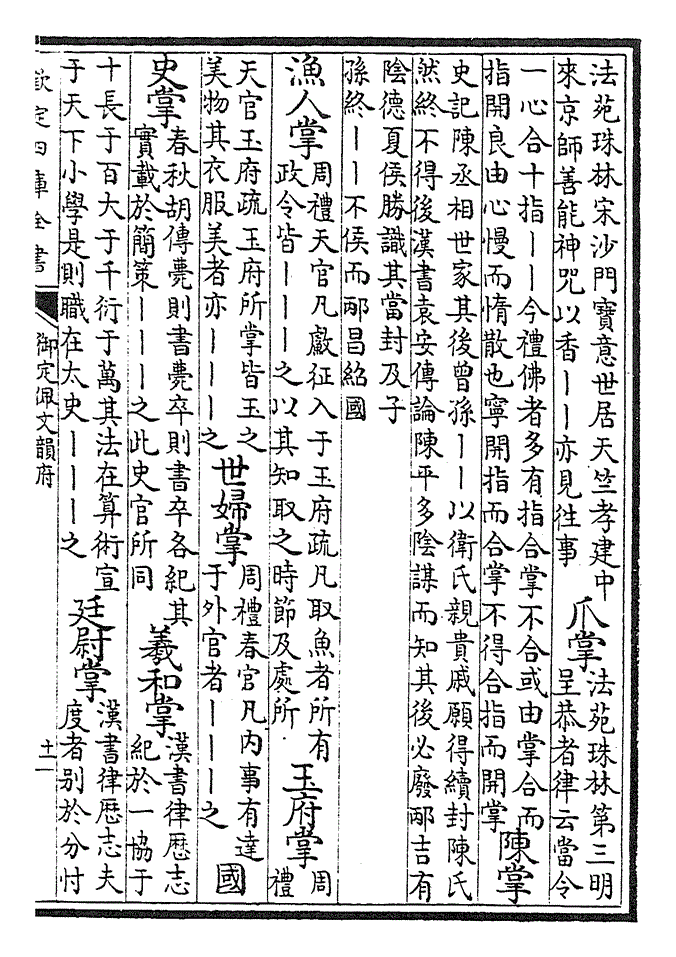 法苑珠林宋沙門寶意世居天竺孝建中
來京師善能神咒以香丨丨亦見往事
爪掌
法苑珠林第三明
呈恭者律云當令
一心合十指丨丨今禮佛者多有指合掌不合或由掌合而
指開良由心慢而惰散也寧開指而合掌不得合指而開掌
陳掌
史記陳丞相世家其後曾孫丨丨以衛氏親貴戚願得續封陳氏
然終不得後漢書袁安傳論陳平多陰謀而知其後必廢邴吉有
陰德夏侯勝識其當封及子
孫終丨丨不侯而邴昌紹國
漁人掌
周禮天官凡䱷征入于玉府疏凡取魚者所有
政令皆丨丨丨之以其知取之時節及處所
玉府掌
周
禮
天官玉府疏玉府所掌皆玉之
美物其衣服美者亦丨丨丨之
世婦掌
周禮春官凡内事有達
于外官者丨丨丨之
國
史掌
春秋胡傳薨則書薨卒則書卒各紀其
實載於簡策丨丨丨之此史官所同
羲和掌
漢書律歴志
紀於一協于
十長于百大于千衍于萬其法在算術宣
于天下小學是則職在太史丨丨丨之
廷尉掌
漢書律歴志夫
度者别於分忖
欽定四庫全書
御定佩文韻府
十一